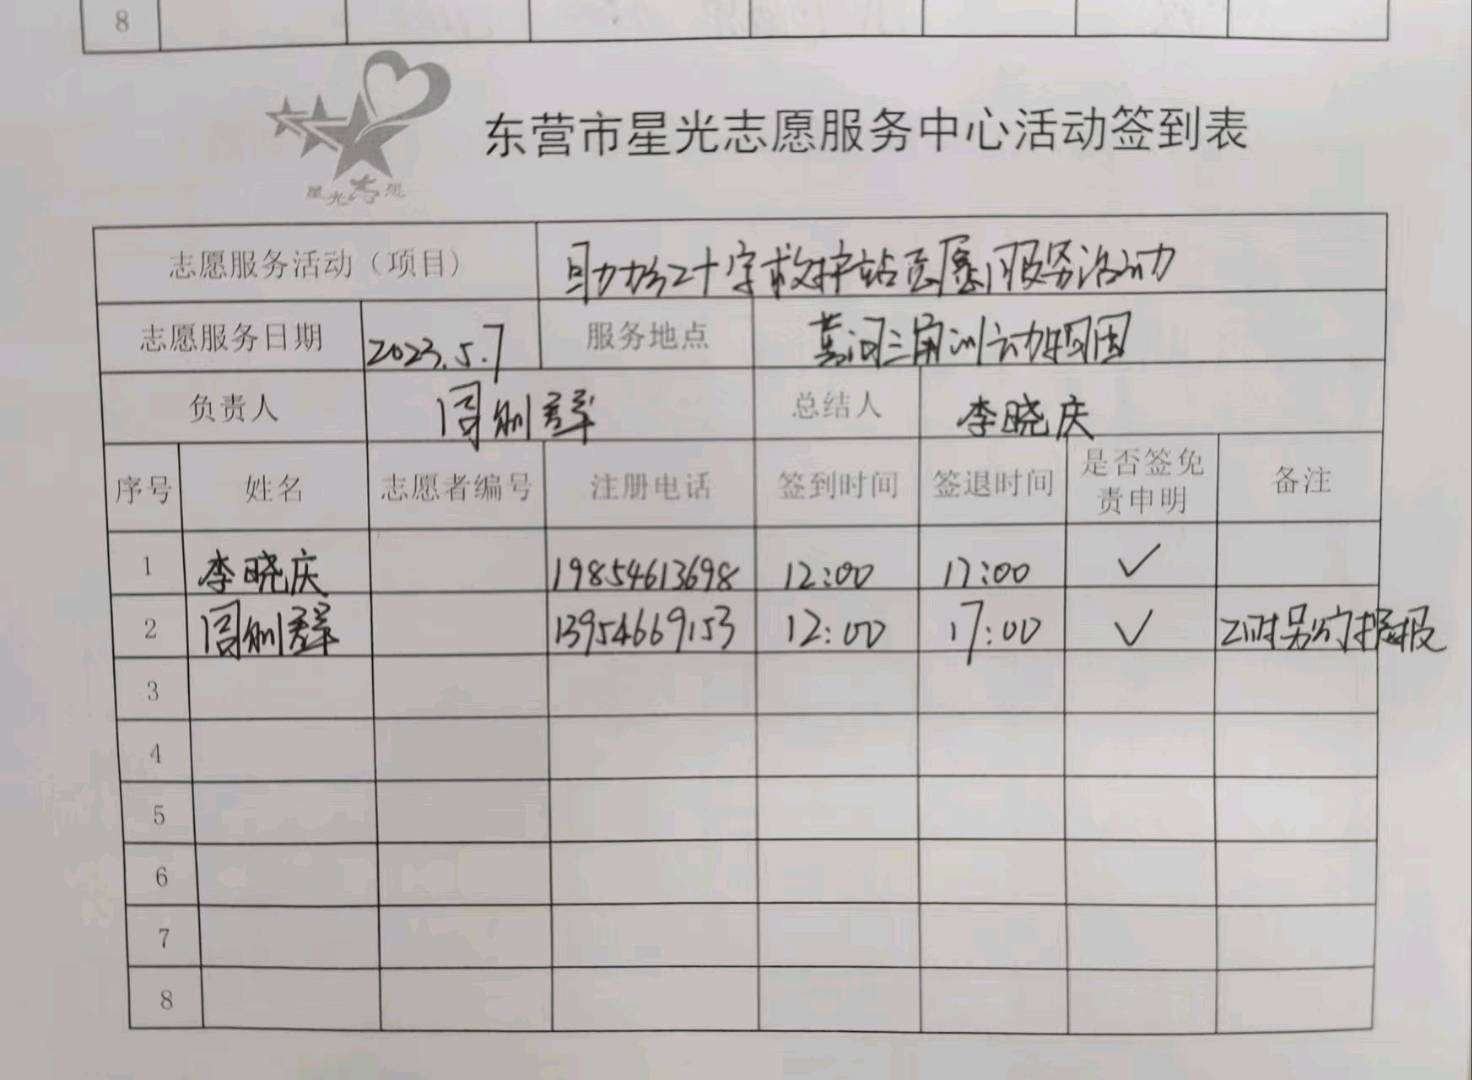 8
星光志愿
东营市星光志愿服务中心活动签到表
志愿服务活动（项目） 助力红十字救护站志愿服务活动
志愿服务日期 2023.5.7 服务地点 黄河三角洲动物园
负责人 周刚群 总结人 李晓庆
序号 姓名 志愿者编号 注册电话 签到时间 签退时间 是否签免责申明 备注
1 李晓庆 19854613698 12:00 17:00 ✓
2 周刚群 13954669153 12:00 17:00 ✓
3
4
5
6
7
8